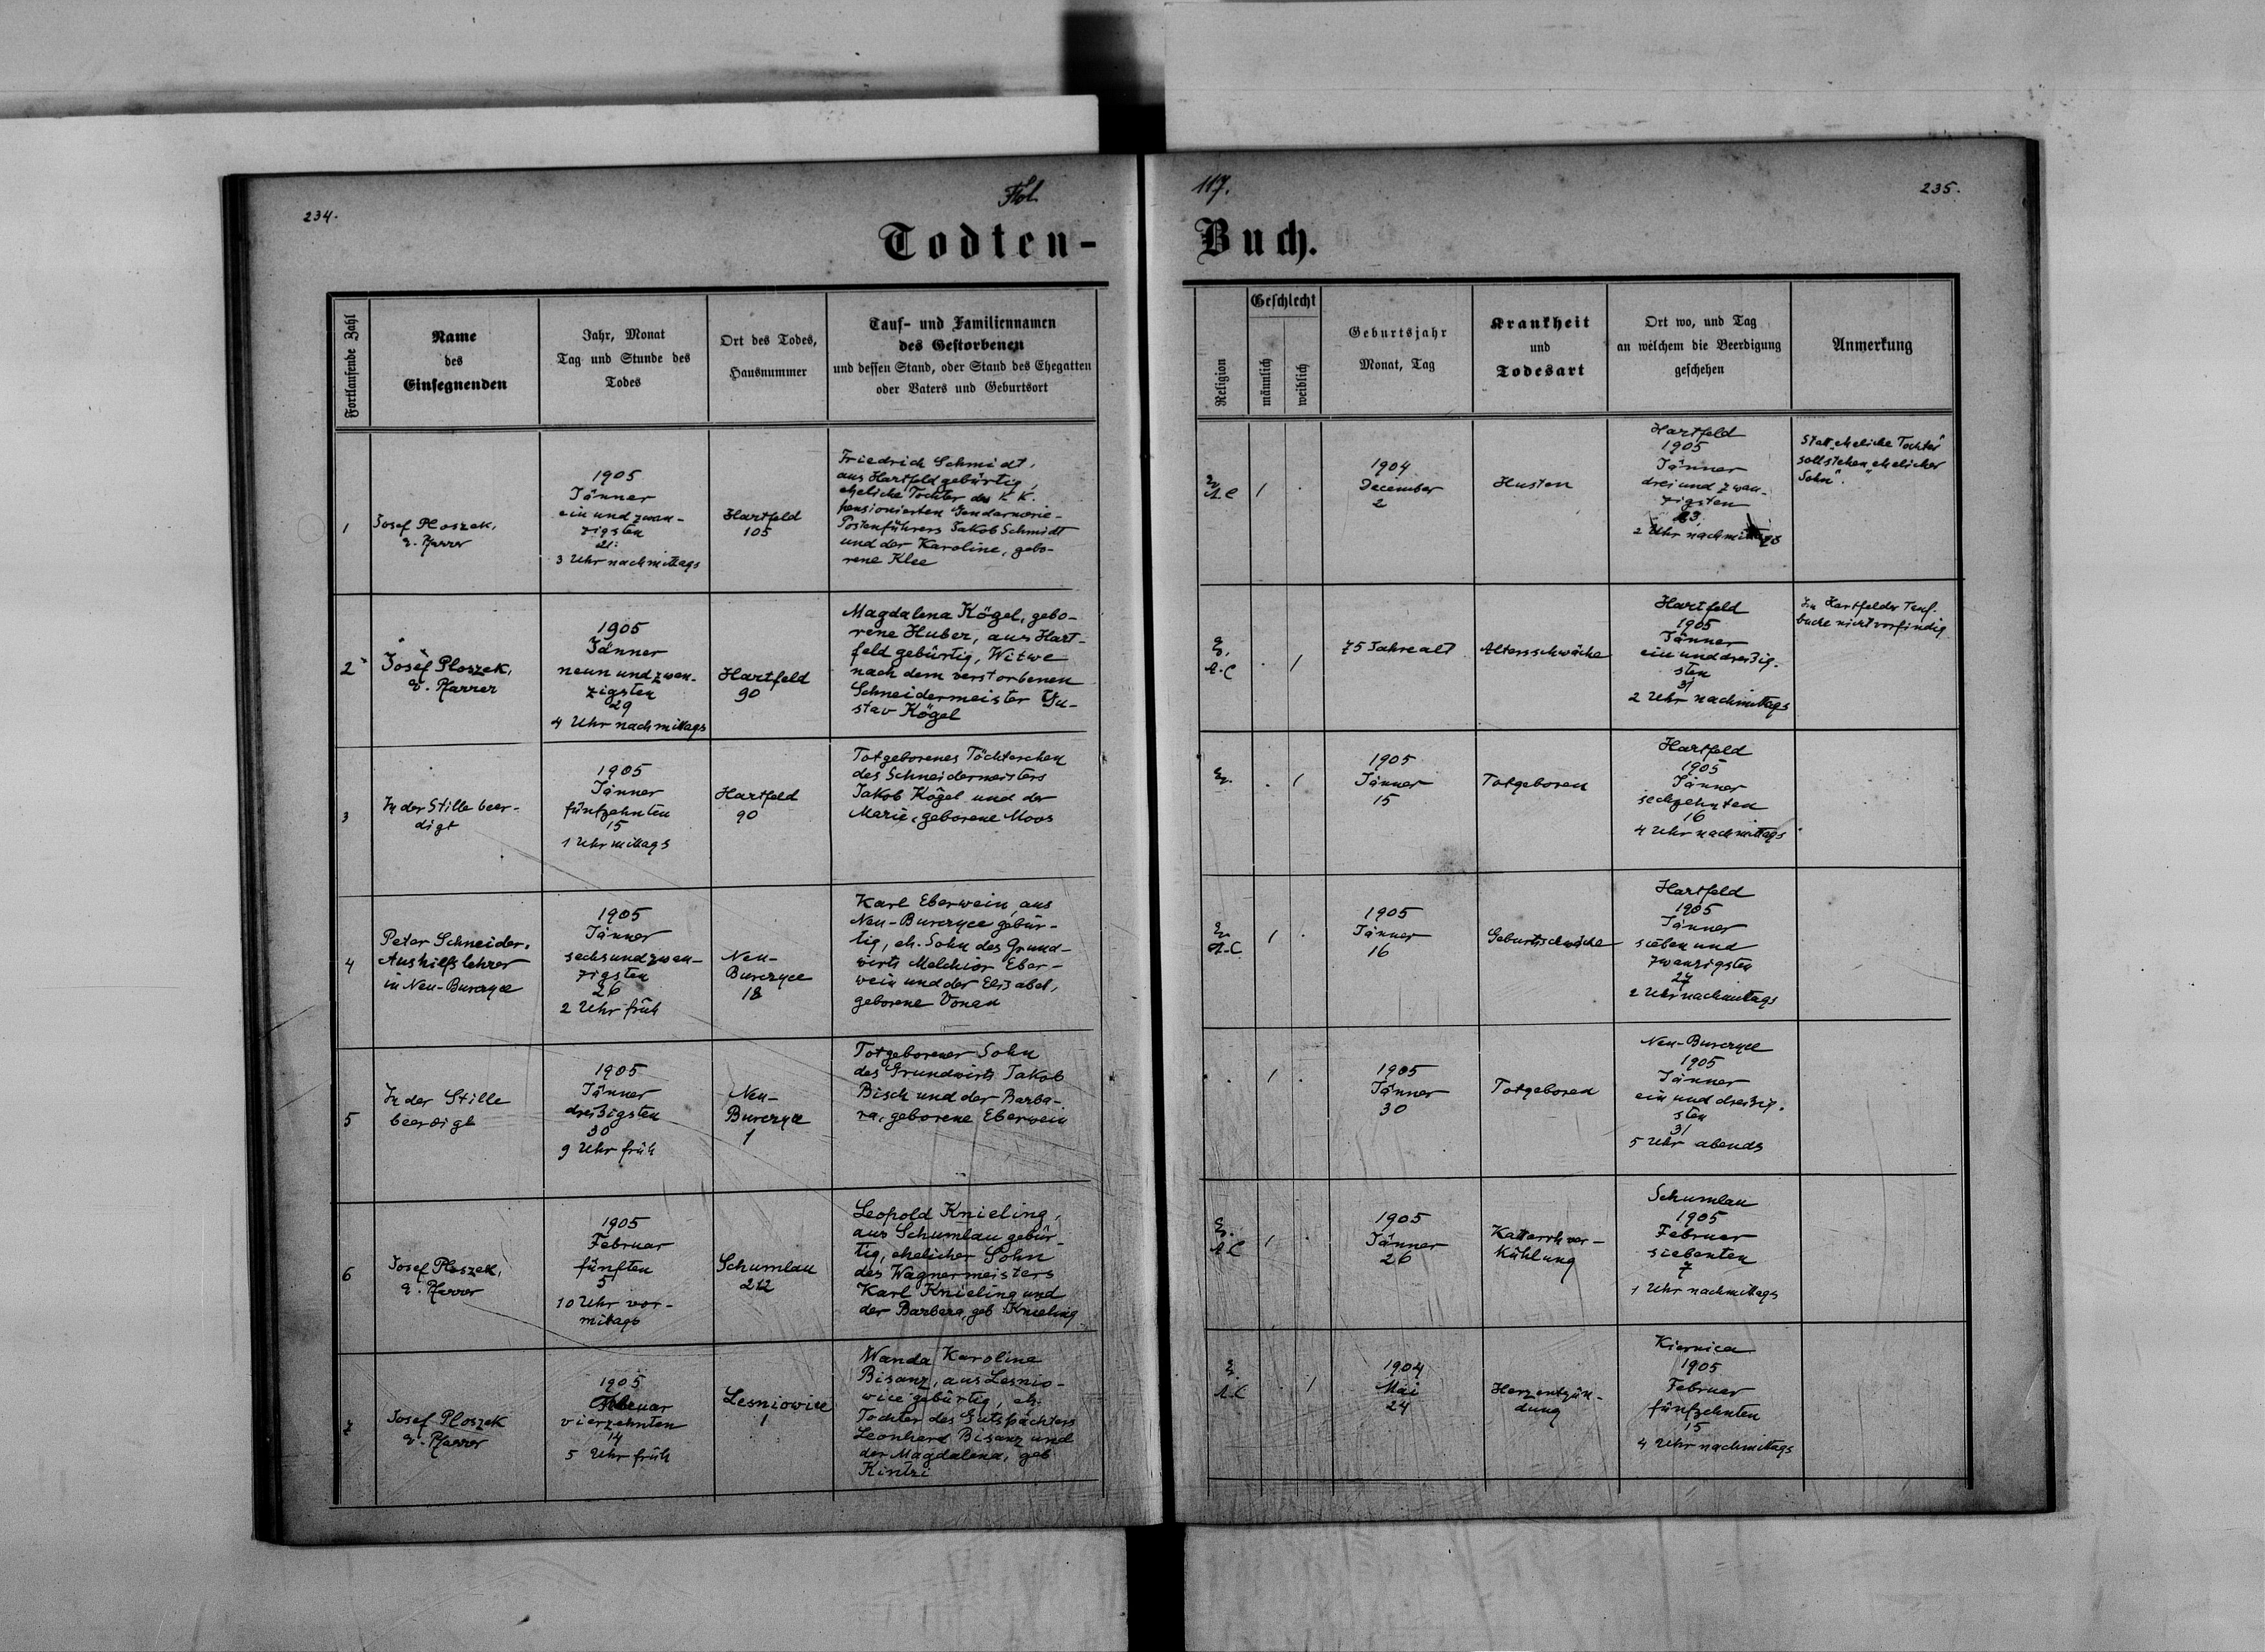 234.
Fol.
117.
235.
Todten-
Buch.
Fortlaufende Zahl
Name
des
Einsegnenden
Jahr, Monat
Tag und Stunde des
Todes
Ort des Todes,
Hausnummer
Tauf- und Familiennamen
des Gestorbenen
und dessen Stand, oder Stand des Ehegatten
oder Vaters und Geburtsort
Religion
Geschlecht
männlich
weiblich
Geburtsjahr
Monat, Tag
Krankheit
und
Todesart
Ort wo, und Tag
an welchem die Beerdigung
geschehen
Anmerkung
1
Josef Ploszek,
e. Pfarrer
1905
Jänner
ein und zwan-
zigsten
21.
3 Uhr nachmittags
Hartfeld
105
Friedrich Schmidt,
aus Hartfeld gebürtig,
eheliche Tochter des k. k.
pensionierten Gendarmerie-
Postenführers Jakob Schmidt
und der Karoline, gebo-
rene Klee
Ev.
A.C
1
.
1904
December
2
Husten
Hartfeld
1905
Jänner
drei und zwan-
zigsten
23
2 Uhr nachmittags
Statt „eheliche Tochter"
soll stehen „ehelicher
Sohn".
2
Josef Ploszek,
e. Pfarrer
1905
Jänner
neun und zwan-
zigsten
29
4 Uhr nachmittags
Hartfeld
90
Magdalena Kögel, gebo-
rene Huber, aus Hart-
feld gebürtig, Witwe
nach dem verstorbenen
Schneidermeister Gu-
stav Kögel
E.
A.C
.
1
75 Jahre alt
Altersschwäche
Hartfeld
1905
Jänner
ein und dreißig-
sten
31
2 Uhr nachmittags
Im Hartfelder Tauf-
buche nicht vorfindig
3
In der Stille beer-
digt
1905
Jänner
fünfzehnten
15
1 Uhr mittags
Hartfeld
90
Totgeborenes Töchterchen
des Schneidermeisters
Jakob Kögel und der
Marie, geborene Moos
Ev.
.
1
1905
Jänner
15
Totgeboren
Hartfeld
1905
Jänner
sechzehnten
16
4 Uhr nachmittags
4
Peter Schneider,
Aushilfslehrer
in Neu-Burczyce
1905
Jänner
sechs und zwan-
zigsten
26
2 Uhr früh
Neu-
Burczyce
18
Karl Eberwein, aus
Neu-Burczyce gebür-
tig, eh. Sohn des Grund-
wirts Melchior Eber-
wein und der Elisabet,
geborene Vonau
Ev.
A.C
1
.
1905
Jänner
16
Geburtsschwäche
Hartfeld
1905
Jänner
sieben und
zwanzigsten
27
2 Uhr nachmittags
5
In der Stille
beerdigt
1905
Jänner
dreißigsten
30
9 Uhr früh
Neu-
Burczyce
1
Totgeborener Sohn
des Grundwirts Jakob
Bisch und der Barba-
ra, geborene Eberwein
.
1
.
1905
Jänner
30
Totgeboren
Neu-Burczyce
1905
Jänner
ein und dreißig-
sten
31
5 Uhr abends
6
Josef Ploszek,
e. Pfarrer
1905
Februar
fünften
5
10 Uhr vor-
mittags
Schumlau
212
Leopold Knieling,
aus Schumlau gebür-
tig, ehelicher Sohn
des Wagnermeisters
Karl Knieling und
der Barbara, geb. Knieling
E.
A.C
1
.
1905
Jänner
26
Katarrh ver-
kühlung
Schumlau
1905
Februar
siebenten
7
1 Uhr nachmittags
7
Josef Ploszek
e. Pfarrer
1905
Februar
vierzehnten
14
5 Uhr früh
Lesniowice
1
Wanda Karoline
Bisanz, aus Lesnio-
wice gebürtig, eh.
Tochter des Gutspächters
Leonhard Bisanz und
der Magdalena, geb
Kintzi
E.
A.C
.
1
1904
Mai
24
Herzentzün-
dung
Kiernica
1905
Februar
fünfzehnten
15
4 Uhr nachmittags